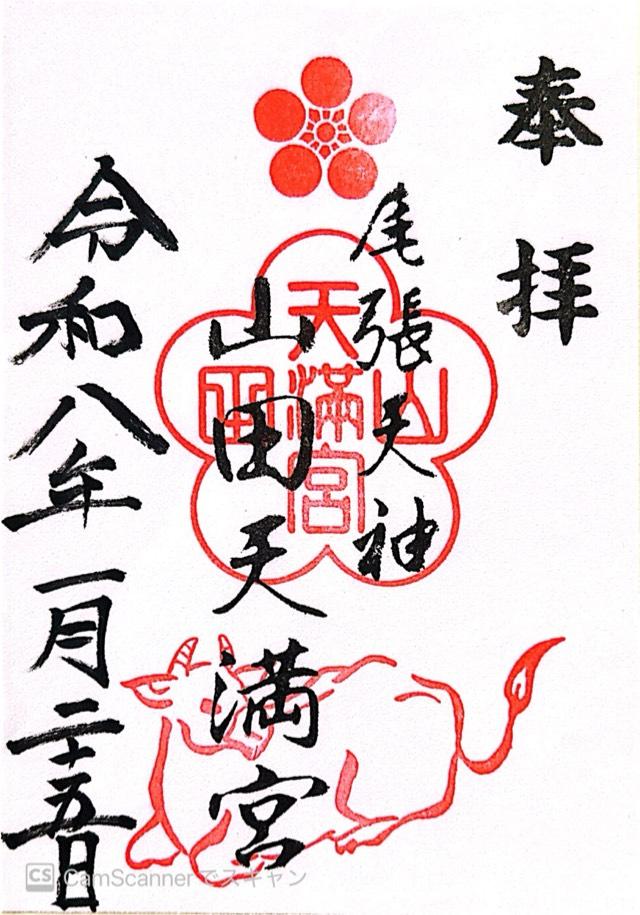 奉拝
尾張天神
山田天満宮
令和八年一月二十五日
山田
天満宮
CS CamScannerでスキャン